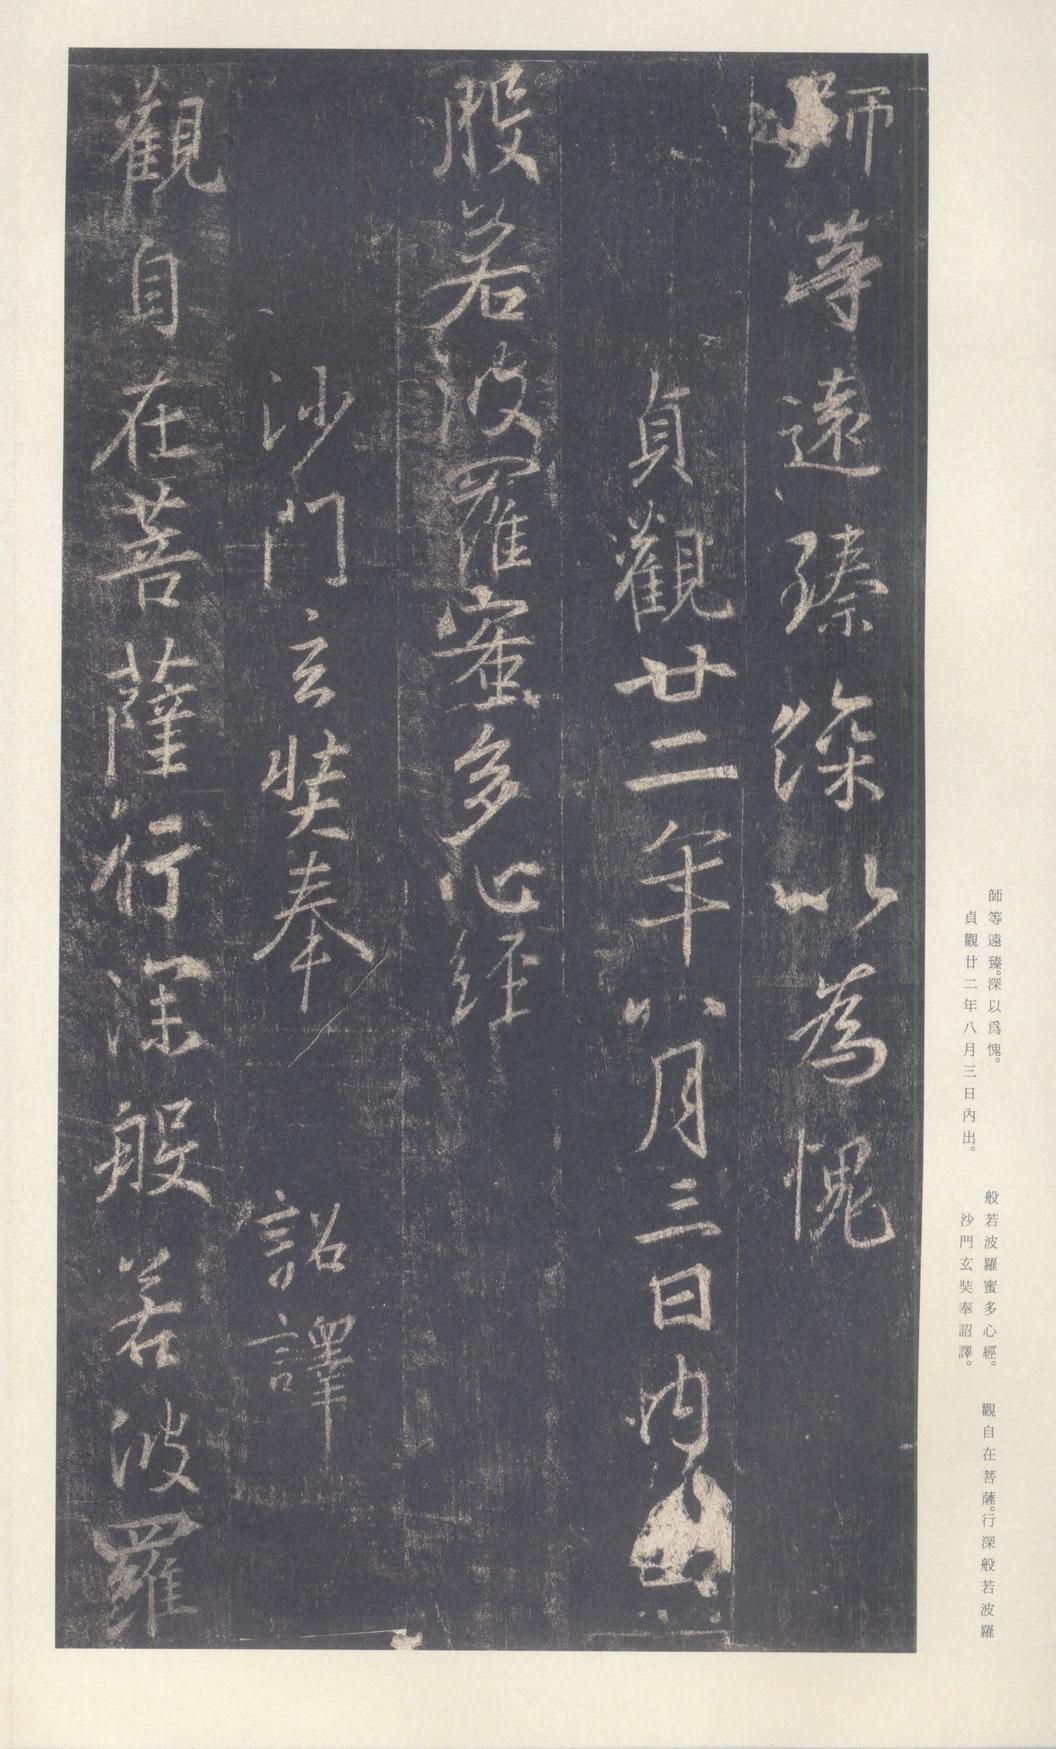 師等遠臻深以為愧
貞觀廿二年八月三日内出
般若波羅蜜多心經
沙門玄奘奉詔譯
觀自在菩薩行深般若波羅
師等遠臻。深以爲愧。
貞觀廿二年八月三日內出。
般若波羅蜜多心經。
沙門玄奘奉詔譯。
觀自在菩薩。行深般若波羅